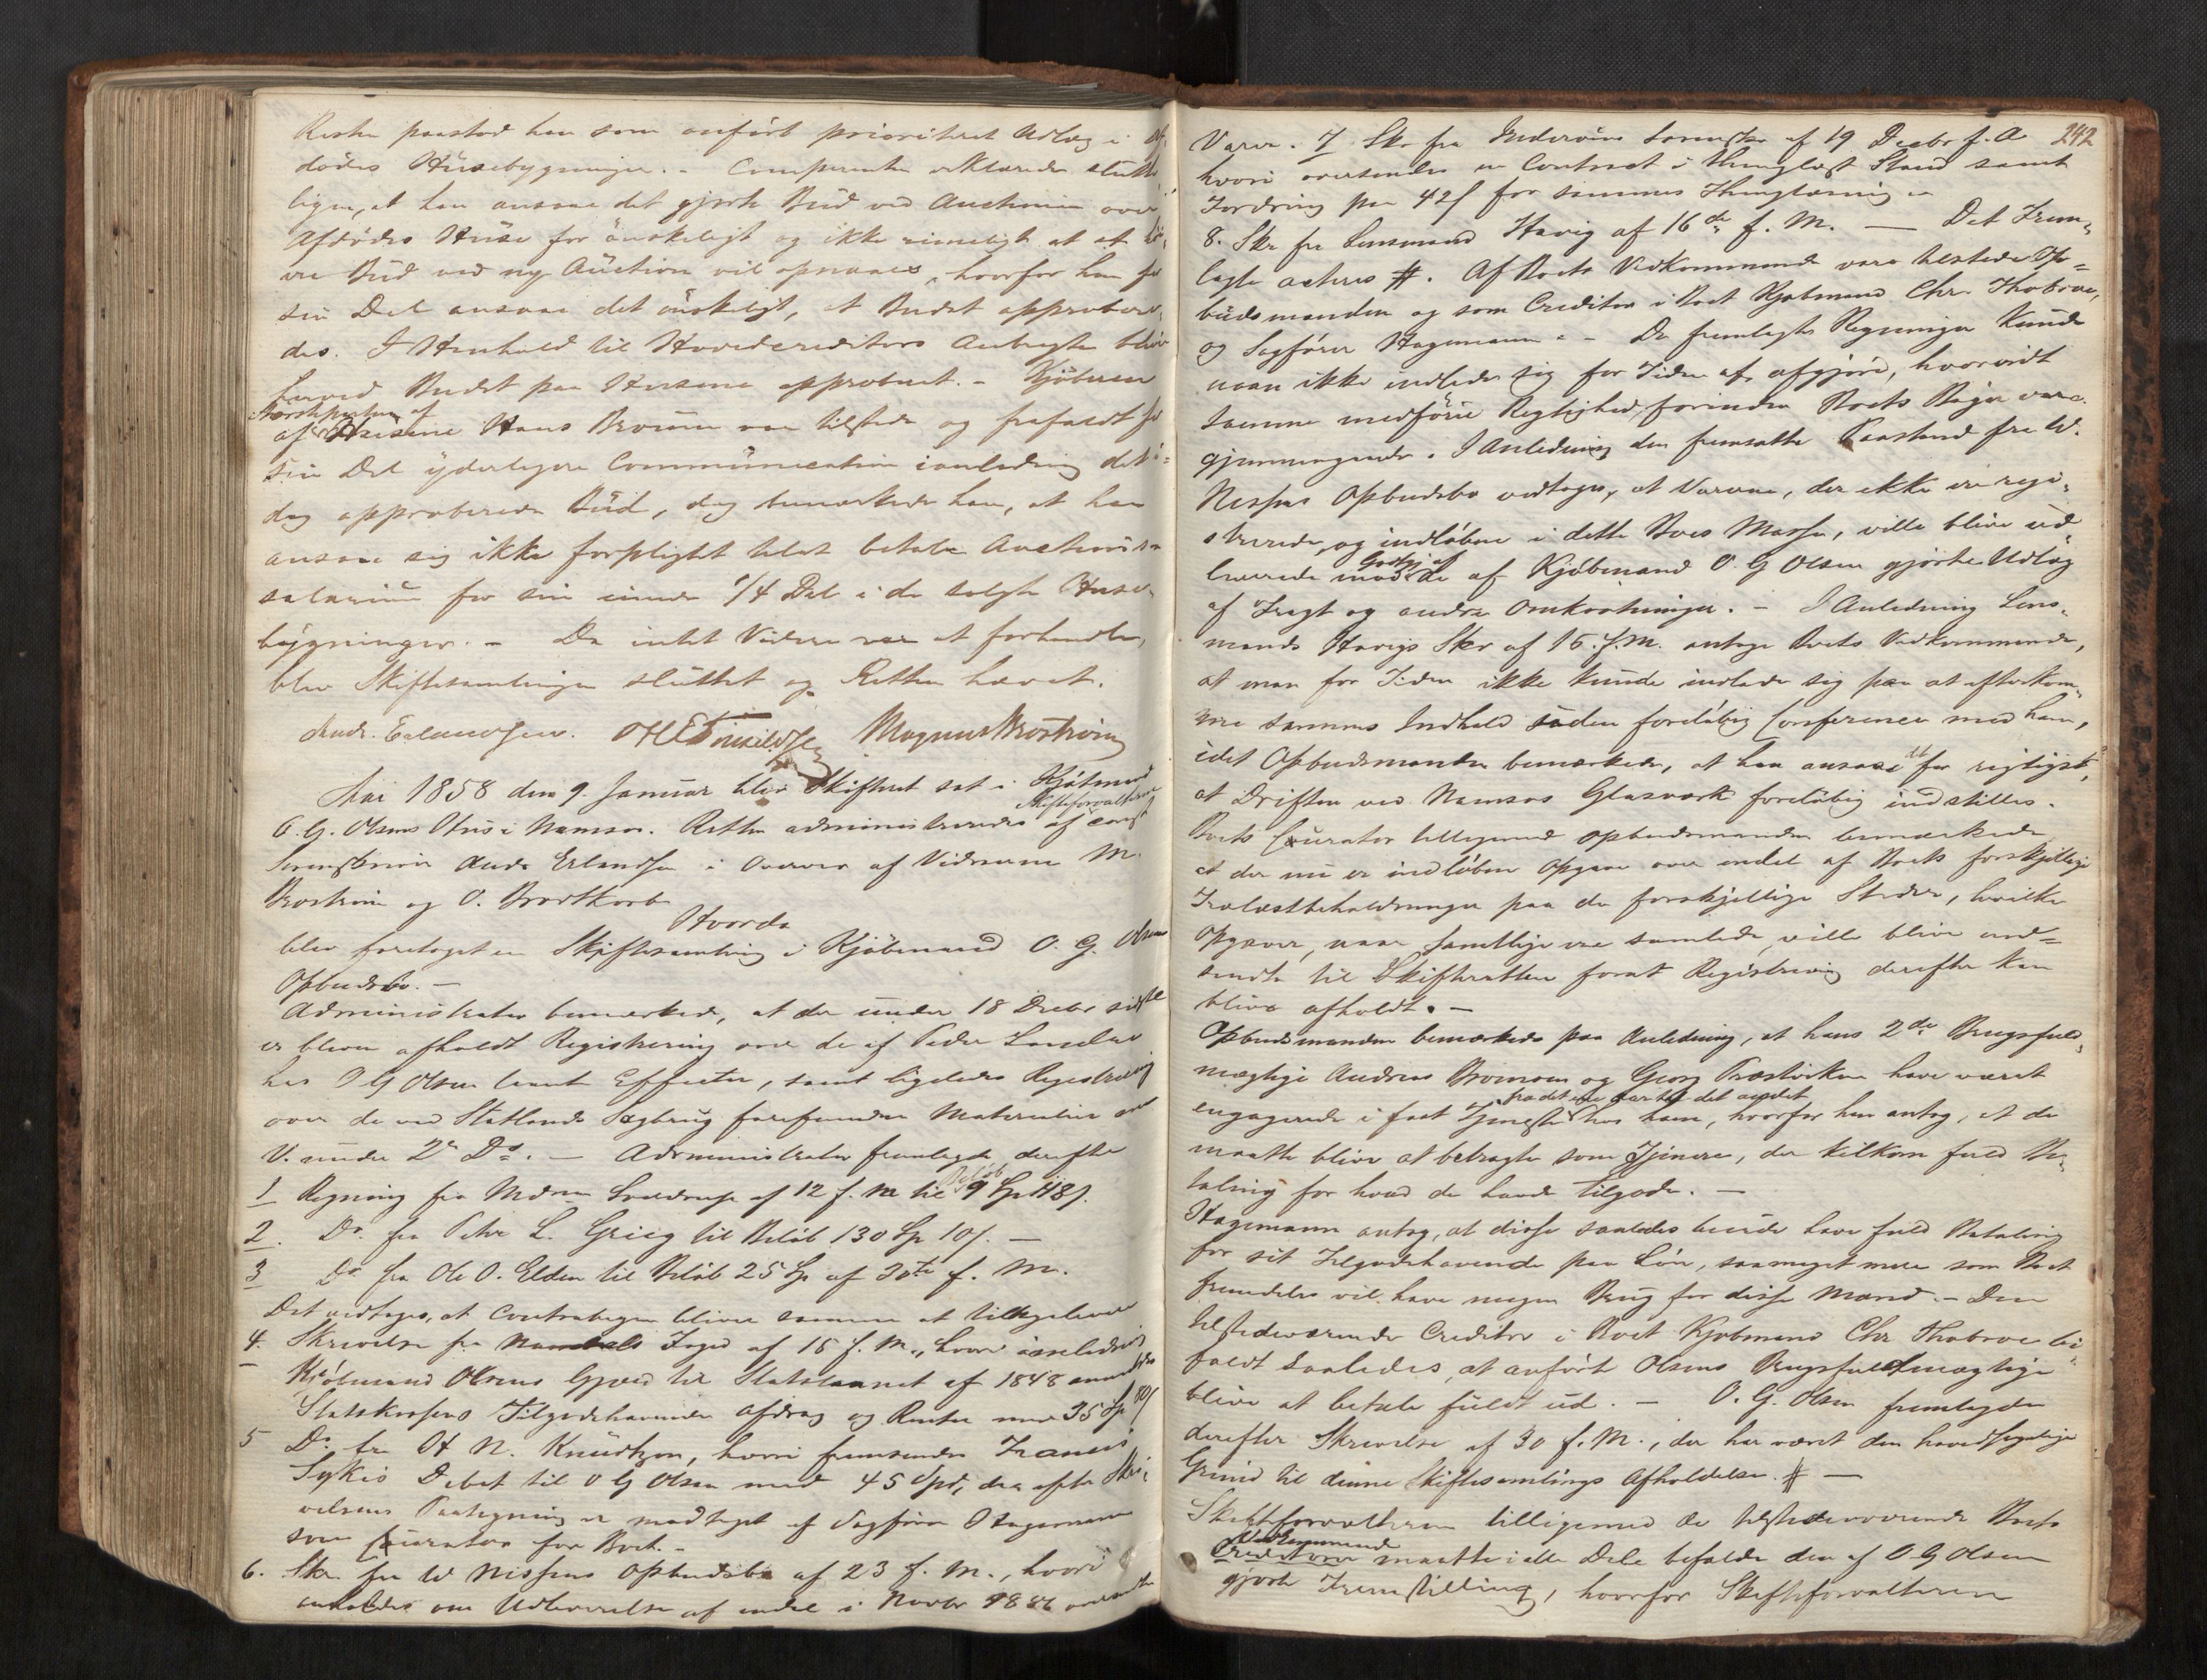 Resten paastod han som anført prioriteret Udlæg i Af-
dødes Husebygninger. - Comparenten erklærede slutte-
ligen, at han ansaae det gjorte Bud ved Auctionen over
Afdødes Huse for ønskeligt og ikke rimeligt at et hø-
ere Bud ved ny Auction vil opnaaes, hvorfor han for
sin Del ansaae det ønskeligt, at Budet approbere-
des. I Henhold til Hovedcreditors Andragende blev
herved Budet paa Husene approberet. - Kjøberen
af
af Husene Hans Broum var tilstede og frafaldt for
sin Del yderligere Communication ianledning det i-
dag approberede Bud, dog bemærkede han, at han
ansaae sig ikke forpligtet til at betale Auctions-
salarium for sin iinde 1/4 Del i de solgte Huse-
bygninger. - Da intet Videre var at forhandle,
blev Skiftesamlingen sluttet og Retten hævet.
Andr. Erlandsen. Magnus Brostrøm
Aar 1858 den 9. Januar blev Skifteret sat i Kjøbmand
Skifteforvalteren
O. G. Olsens Huus i Namsos. Retten administreredes af const
Sorenskriver Andr Erlandsen i Overvær af Vidnerne M.
Brostrøm og O. Brodtkorb
Hvorda
blev foretaget en Skiftesamling i Kjøbmand O. G. Olsens
Opbudsbo. -
Administrator bemærkede, at der under 18 Decbr sidstl
er bleven afholdt Registrering over de af Peder
hos O G Olsen Effecter, samt ligeledes Registrering
over de ved Statlands Sagbrug forefundne Materialier
V. under 2 Do. - Administrator fremlagde derefter
1 Regning fra af 12 f. M til Beløb 9 Sp 118 s.
2. Do fra Peter L. Grieg til Beløb 130 Sp 10 s. -
3 Do fra Ole O. Elden til Beløb 25 Sp af 30te f. M.
Det vedtoges, at Contrabogen bliver samme at tilbagelevere
4. Skrivelse fra Namdals Foged af 15 f. M., hvori ianledning
Kjøbmand Olsens Gjæld til Statslaanet af 1848 anmeldes
Statskassens Tilgodehavende Afdrag og Renter med 35 Sp
5 Do fra H N. Knudtzon, hvori fremsendes Francis
Sykes Debet til O G Olsen med 45 Spd, der efter Skri-
velsens Paategning er modtaget af Sagfører Hagemann
som Curator for Boet. -
6. Skr. fra W Nissens Opbudsbo af 23 f. M., hvori
anholdes om Udleverelse af endel i Novbr
242
Varer. 7 Skr fra Inderøens Sorenskr af 19 Decbr f. A
hvori oversendes en Contract i thinglæst Stand samt
Fordring paa 42 s for sammes Thinglæsning
8. Skr fra Lensmand Havig af 16de f. M. — Det Frem-
lagte acteres #. Af Boets Vedkommende vare tilstede Op-
budsmanden og som Creditor i Boet Kjøbmand Chr. Thobroe,
og Sagfører Hagemann. - De fremlagte Regninger kunde
man ikke indlade sig for Tiden at afgjøre, hvorvidt
samme medføre Rigtighed, forinden Boets Bøger vare
gjennemgaaede. I Anledning den fremsatte Paastand fra W.
Nissens Opbudsbo vedtoges, at Varerne, der ikke ere regi-
strerede, og indløbne i dette Boes Masse, ville blive ud-
Godtgj af
leverede mod de af Kjøbmand O. G Olsen gjorte Udlæg
af Fragt og andre Omkostninger. - I Anledning Lens-
mands Havigs Skr af 15. f. M. antoge Boets Vedkommende,
at man for Tiden ikke kunde indlade sig paa at efterkom-
me sammes Indhold uden foreløbig Conference med ham,
idet Opbudsmanden bemærkede, at han ansaae det for rigtigst,
at Driften ved Namsos Glasværk foreløbig indstilles.
Boets Curator tilligemed Opbudsmanden bemærkede
at der nu er indløben Opgave over endel af Boets forskjellige
Trælastbeholdninger paa de forskjellige Steder, hvilke
Opgaver, naar samtlige ere samlede, ville blive ind-
sendte til Skifteretten forat Registrering derefter kan
blive afholdt. -
Opbudsmanden bemærkede paa Anledning, at hans 2de Brugsfuld-
mægtige Andreas Bromsen og Georg have været
fra det ene Aar til det andet
engagerede i fast Tjeneste hos ham, hvorfor han antog, at de
maatte blive at betragte som Tjenere, der tilkom fuld Be-
taling for hvad de havde tilgode. -
Hagemann antog, at disse saaledes burde have fuld Betaling
for sit Tilgodehavende paa Løn, saameget mere som Boet
fremdeles vil have megen Brug for disse Mænd. - Den
tilstedeværende Creditor i Boet Kjøbmand Chr Thobroe bi-
faldt saaledes, at anførte Olsens Brugsfuldmægtige
blive at betale fuldt ud. - O. G. Olsen fremlagde
derefter Skrivelse af 30 f. M., der har været den hovedsagelige
Grund til denne Skiftesamlings Afholdelse. # —
Skifteforvalteren tilligemed de tilstedeværende Boets
Vedkommende
Creditorer maatte i alle Dele befalde den af O G Olsen
gjorte Fremstilling, hvorfor Skifteforvalteren